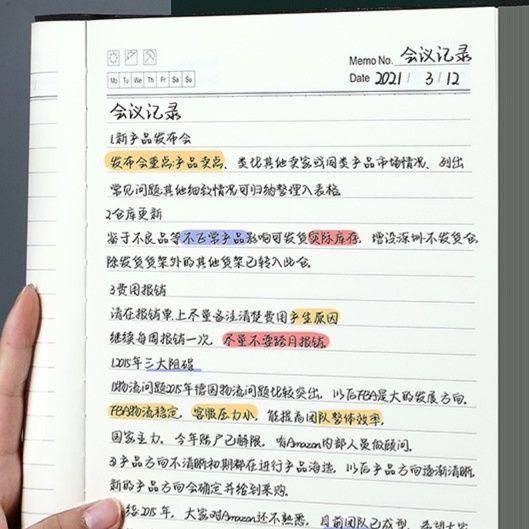 Memo No. 会议记录
Mo Tu We Th Fr Sa Su
Date 2021 / 3 / 12
会议记录
1.新产品发布会
发布会重点:产品卖点、类比其他卖家或同类产品市场情况、列出
常见问题.其他细数情况可归纳整理入表格.
2.仓库更新
鉴于不良品等不正常产品影响可发货实际库存,增设深圳不发货仓.
除发货货架外的其他货架已转入此仓.
3.费用报销
请在报销单上尽量备注清楚费用产生原因
继续每周报销一次,尽量不要跨月报销.
1.2015年三大阻碍
1)物流问题2015年借因物流问题比较突出,以后FBA是大的发展方向.
FBA物流稳定,客服压力小,能提高团队整体效率.
国家主力,今年账户已解限,有Amazon内部人员做顾问.
2)产品方向不清晰初期都在进行产品海选,以后产品方向逐渐清晰
新的产品方向会确定并给到采购.
2015年,大家对Amazon还不熟悉,目前团队已成型,希望大家